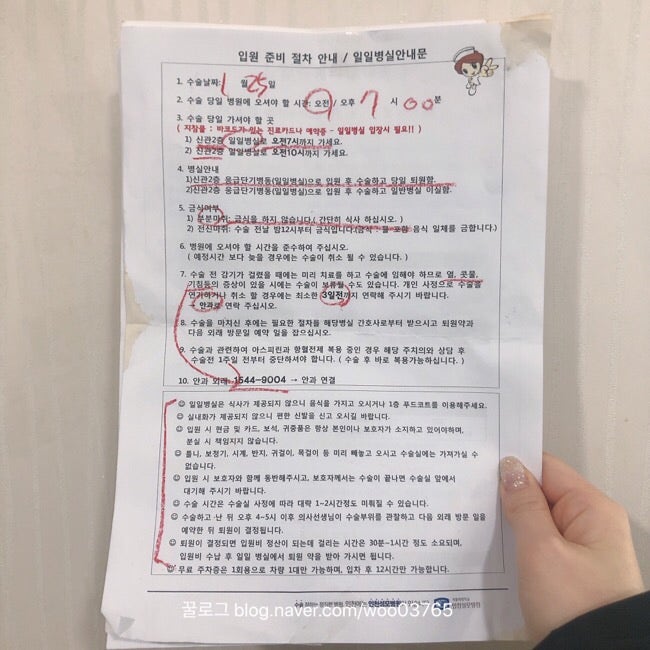 입원 준비 절차 안내 / 일일병실안내문
1. 수술날짜: 1 월 25 일
2. 수술 당일 병원에 오셔야 할 시간: 오전 / 오후 7 시 00 분
3. 수술 당일 가셔야 할 곳
( 지참물 : 바코드가 있는 진료카드나 예약증 - 일일병실 입장시 필요!! )
1) 신관2층 일일병실로 오전7시까지 가세요.
2) 신관2층 일일병실로 오전10시까지 가세요.
4. 병실안내
1)신관2층 응급단기병동(일일병실)으로 입원 후 수술하고 당일 퇴원함.
2)신관2층 응급단기병동(일일병실)으로 입원 후 수술하고 일반병실 이실함.
5. 금식여부
1) 부분마취: 금식을 하지 않습니다( 간단히 식사 하십시오. )
2) 전신마취: 수술 전날 밤12시부터 금식입니다.(금식 : 물 포함 음식 일체를 금합니다.)
6. 병원에 오셔야 할 시간을 준수하여 주십시오.
( 예정시간 보다 늦을 경우에는 수술이 취소 될 수 있습니다. )
7. 수술 전 감기가 걸렸을 때에는 미리 치료를 하고 수술에 임해야 하므로 열, 콧물,
기침등의 증상이 있을 시에는 수술이 보류될 수도 있습니다. 개인 사정으로 수술을
연기하거나 취소 할 경우에는 최소한 3일전까지 연락해 주시기 바랍니다.
→ 안과로 연락 주십시오.
8. 수술을 마치신 후에는 필요한 절차를 해당병실 간호사로부터 받으시고 퇴원약과
다음 외래 방문일 예약 일을 잡으십시오.
9. 수술과 관련하여 아스피린과 항혈전제 복용 중인 경우 해당 주치의와 상담 후
수술전 1주일 전부터 중단하셔야 합니다. ( 수술 후 바로 복용가능하십니다. )
10. 안과 외래: 1544-9004 → 안과 연결
☺ 일일병실은 식사가 제공되지 않으니 음식을 가지고 오시거나 1층 푸드코트를 이용해주세요.
☺ 실내화가 제공되지 않으니 편한 신발을 신고 오시길 바랍니다.
☺ 입원 시 현금 및 카드, 보석, 귀중품은 항상 본인이나 보호자가 소지하고 있어야하며,
분실 시 책임지지 않습니다.
☺ 틀니, 보청기, 시계, 반지, 귀걸이, 목걸이 등 미리 빼놓고 오시고 수술실에는 가져가실 수
없습니다.
☺ 입원 시 보호자와 함께 동반해주시고, 보호자께서는 수술이 끝나면 수술실 앞에서
대기해 주시기 바랍니다.
☺ 수술 시간은 수술실 사정에 따라 대략 1~2시간정도 미뤄질 수 있습니다.
☺ 수술하고 난 뒤 오후 4~5시 이후 의사선생님이 수술부위를 관찰하고 다음 외래 방문 일을
예약한 뒤 퇴원이 결정됩니다.
☺ 퇴원이 결정되면 입원비 정산이 되는데 걸리는 시간은 30분~1시간 정도 소요되며,
입원비 수납 후 일일 병실에서 퇴원 약을 받아 가시면 됩니다.
☺ 무료 주차증은 1회용으로 차량 1대만 가능하며, 입차 후 12시간만 가능합니다.
꿀로그 blog.naver.com/woo03765